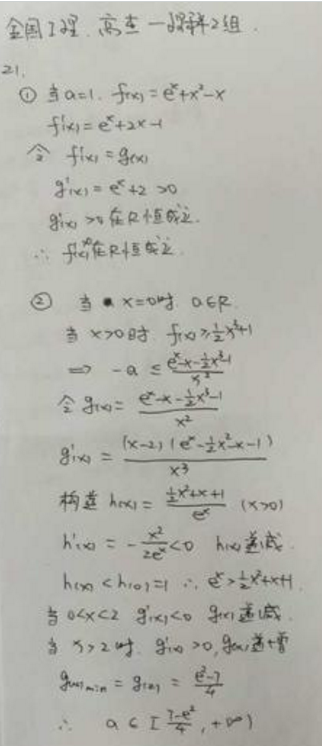 全国I理.高考一课群2组.
21.
① 当a=1. f(x)=e^x+x²-x
f'(x)=e^x+2x-1
令 f'(x)=g(x)
g'(x)=e^x+2>0
g'(x)>0在R恒成立.
∴ f'(x)在R恒成立
② 当 x=0时 a∈R.
当 x>0时 f(x)≥½x³+1
⇒ -a≤(e^x-x-½x³-1)/x²
令 g(x)=(e^x-x-½x³-1)/x²
g'(x)=(x-2)(e^x-½x²-x-1)/x³
构造 h(x)=(½x²+x+1)/e^x (x>0)
h'(x)=-x²/2e^x<0 h(x)递减.
h(x)<h(0)=1 ∴ e^x>½x²+x+1
当 0<x<2 g'(x)<0 g(x)递减.
当 x>2时. g'(x)>0, g(x)递增
g(x)min=g(2)=(e²-7)/4
∴ a∈[(7-e²)/4,+∞)